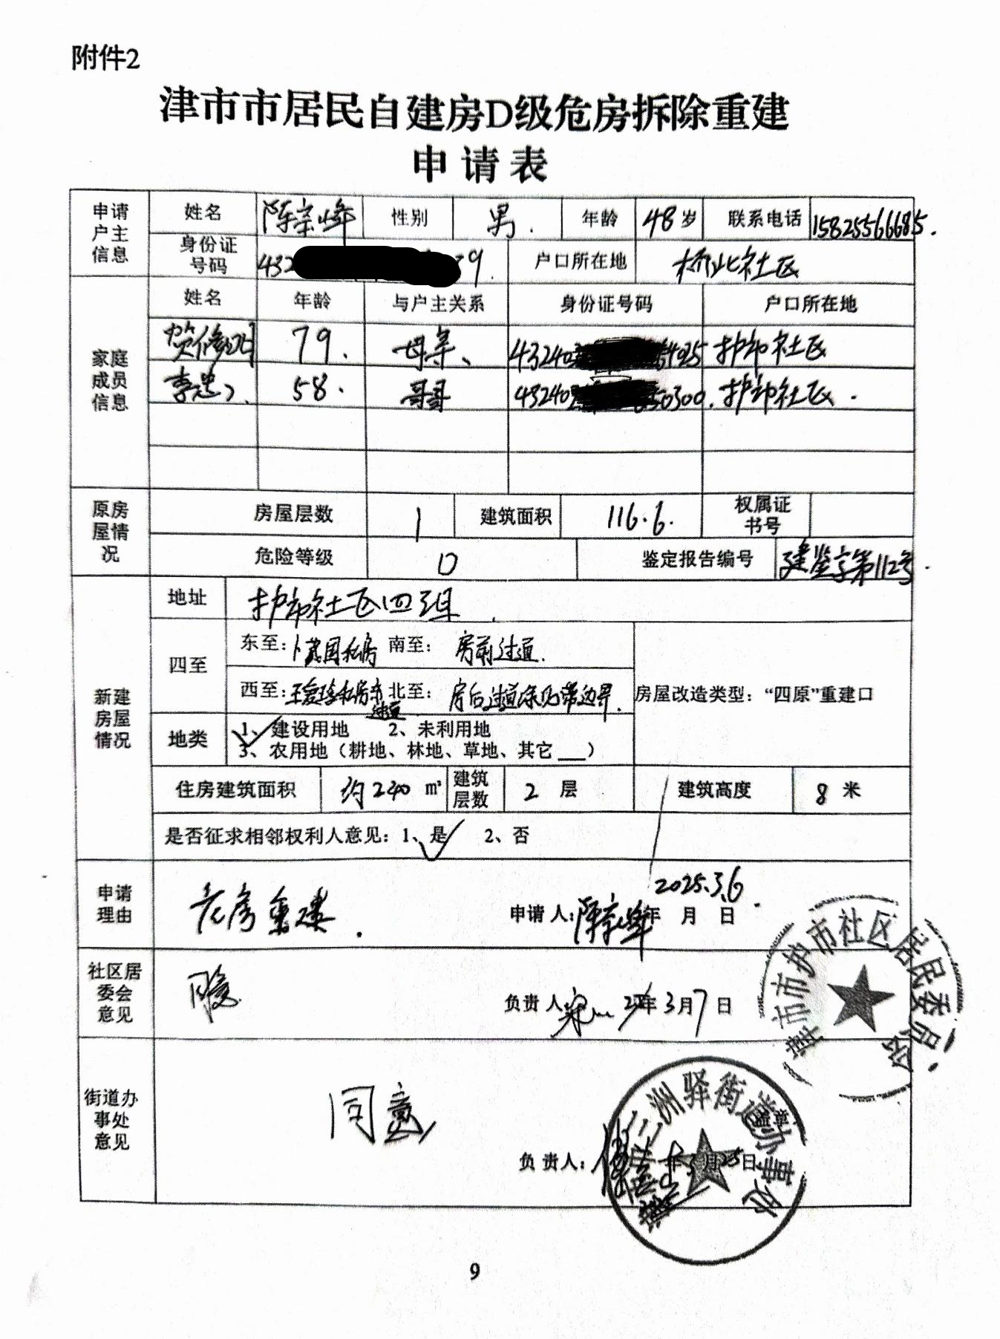 附件2
津市市居民自建房D级危房拆除重建
申请表
申请户主信息 姓名 陈宗峰 性别 男. 年龄 48岁 联系电话 15825566685.
身份证号码 432 9. 户口所在地 桥北社区
家庭成员信息 姓名 年龄 与户主关系 身份证号码 户口所在地
79. 母亲、 43240 4025 护市社区
李忠 58. 哥哥 43240 50300. 护市社区.
原房屋情况 房屋层数 1 建筑面积 116.6. 权属证书号
危险等级 D 鉴定报告编号 建鉴字第112号.
新建房屋情况 地址 护市社区四组
四至 东至: 卜 国私房 南至: 房前过道.
西至: 私房 过道 北至: 房后过道 边界. 房屋改造类型: “四原”重建口
地类 1、✓建设用地 2、未利用地
3、农用地(耕地、林地、草地、其它___)
住房建筑面积 约240 m² 建筑层数 2 层 建筑高度 8 米
是否征求相邻权利人意见: 1、是✓ 2、否
申请理由 危房重建. 申请人: 陈宗峰 2025.3.6. 年 月 日
社区居委会意见 同意 负责人: 年3月7日
街道办事处意见 同意 负责人: 年 3月25日
津市市护市社区居民委员会
洲驿街道办事处
9